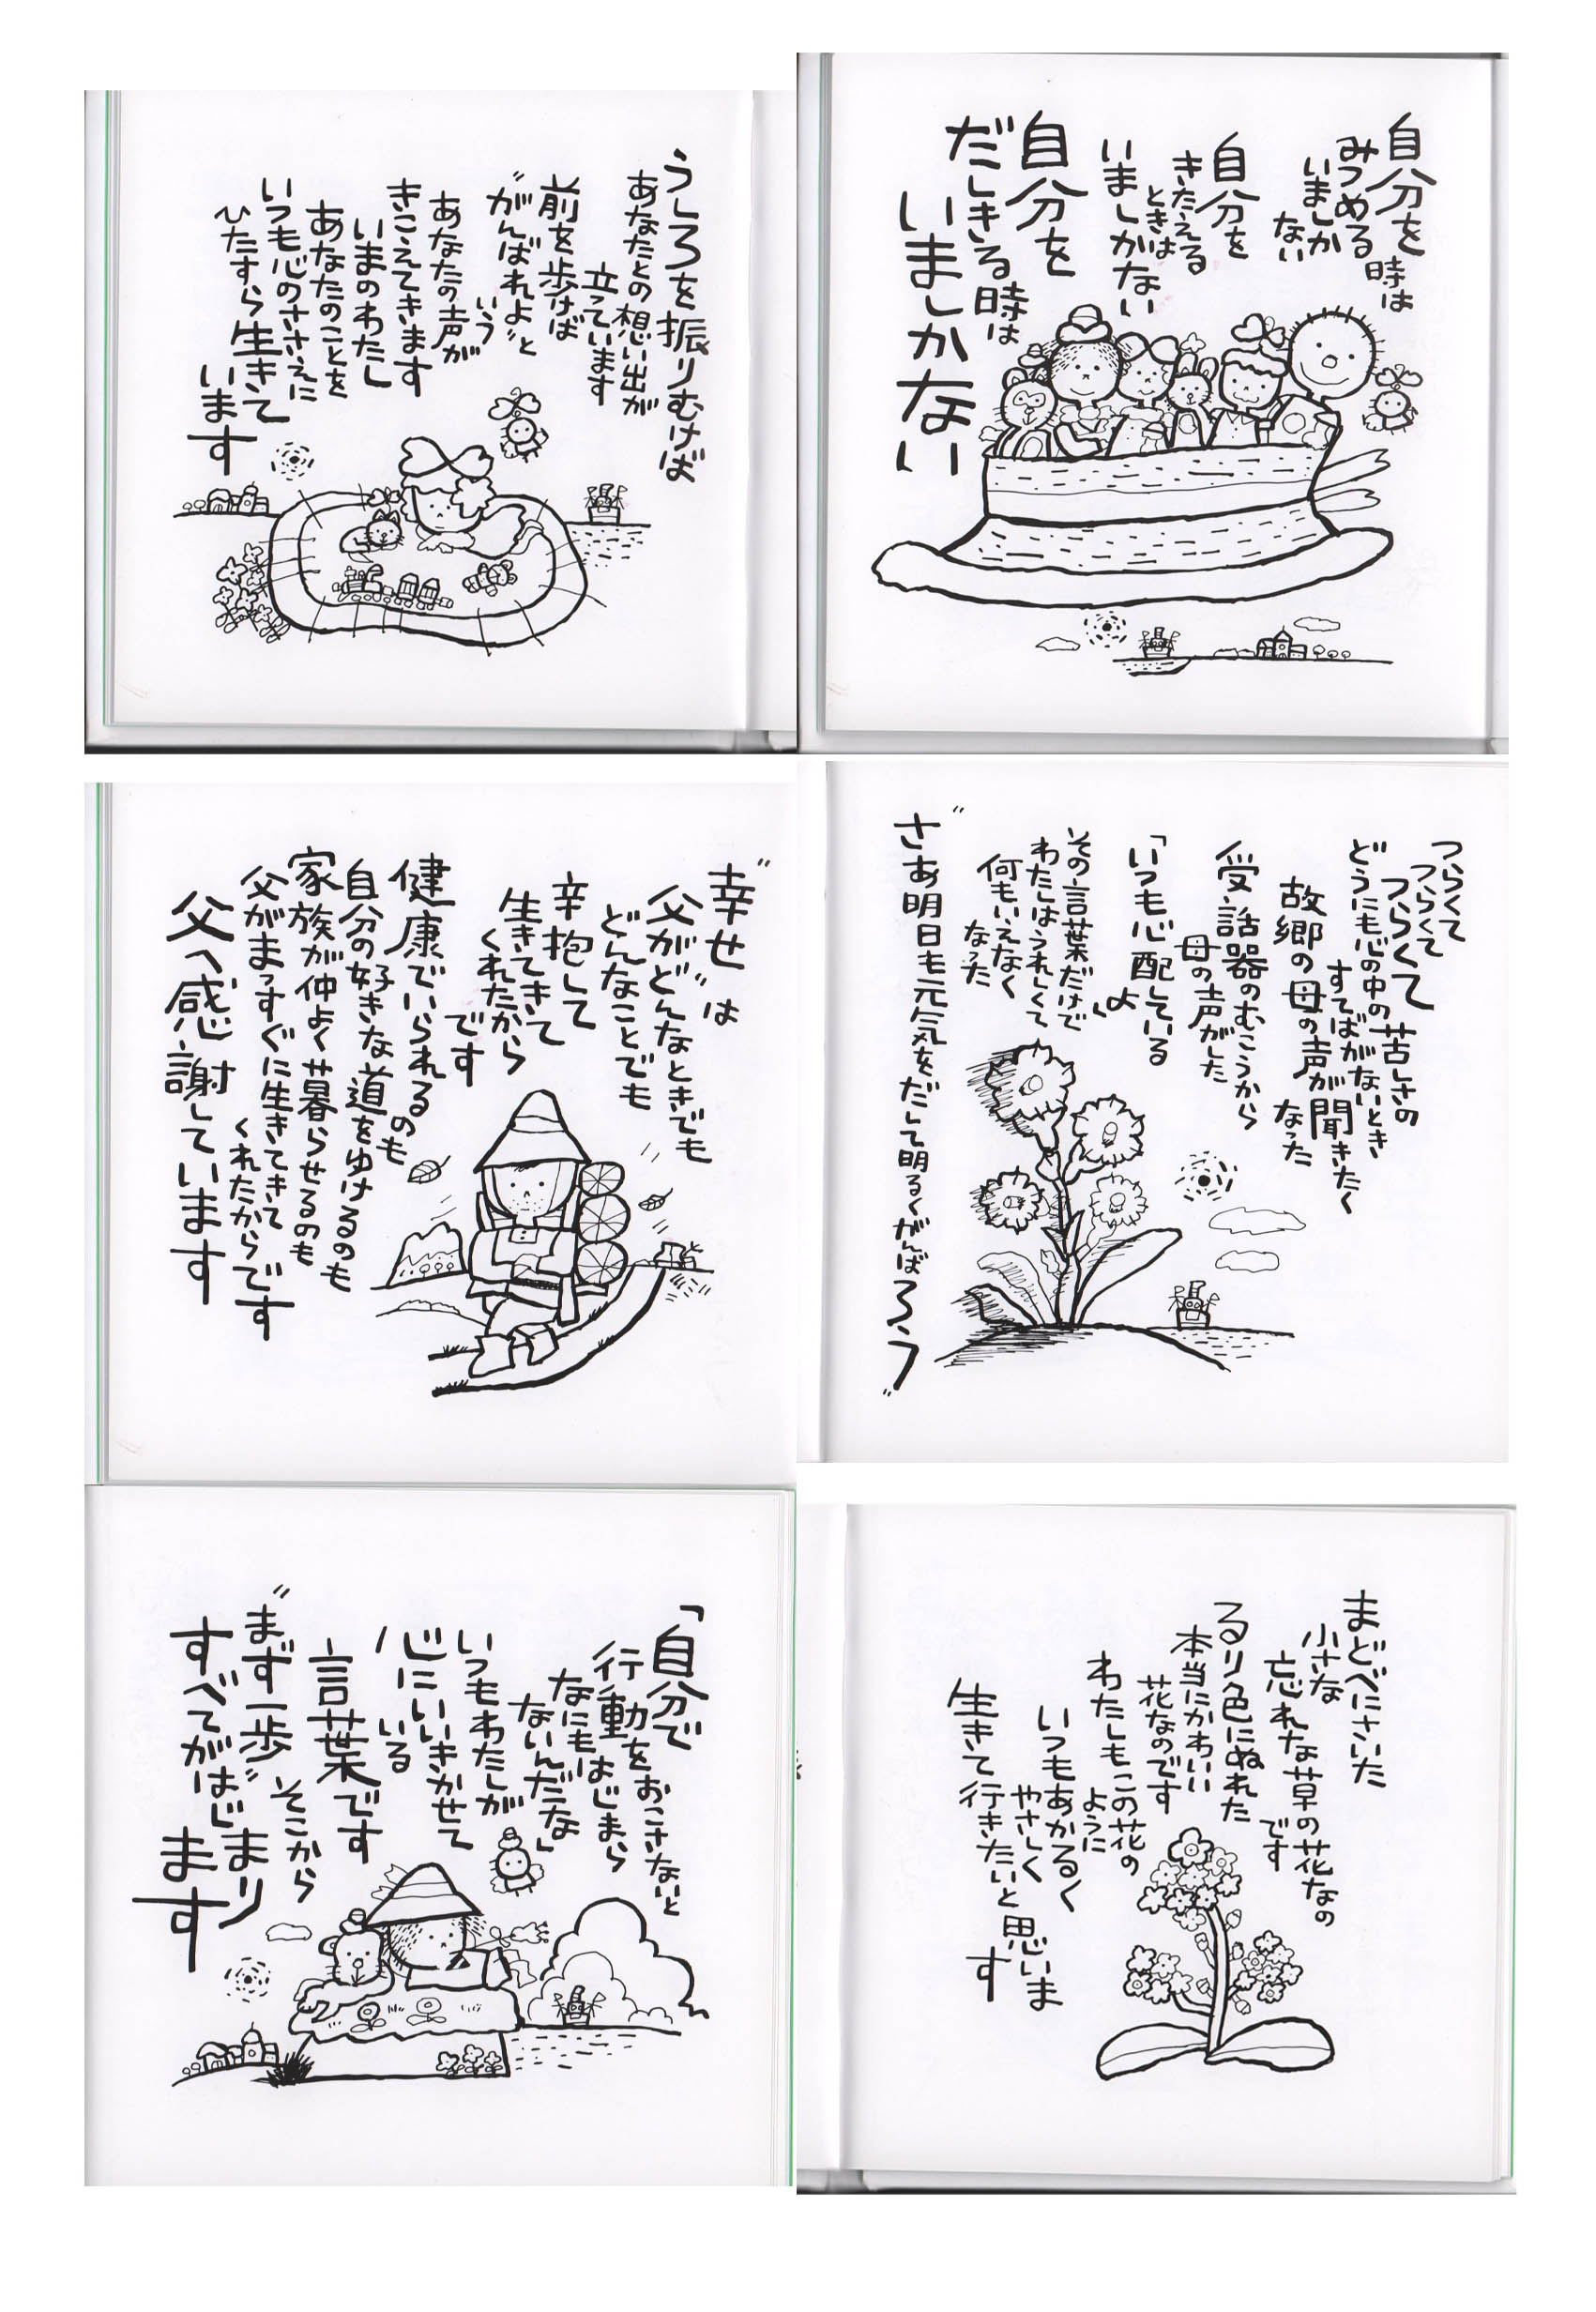 自分を
みつめる時は
いましか
ない
自分を
きたえる
ときは
いましかない
自分を
だしきる時は
いましかない
うしろを振りむけば
あなたとの想い出が
立っています
前を歩けば
“がんばれよ”と
いう
あなたの声が
きこえてきます
いまのわたし
あなたのことを
いつも心のささえに
ひたすら生きて
います
つらくて
つらくて
つらくて苦しさの
どうにも心の中の
すてばがないとき
故郷の母の声が聞きたく
なった
受話器のむこうから
母の声がした
「いつも心配している
よ」
その言葉だけで
わたしはうれしくて
何もいえなく
なった
“さあ明日も元気をだして明るくがんばろう”
“幸せ”は
父がどんなときでも
どんなことでも
辛抱して
生きてきて
くれたから
です
健康でいられる
のも
自分の好きな道をゆけるのも
家族が仲よく暮らせるのも
父がまっすぐに生きてきて
くれたからです
父へ感謝しています
まどべにさいた
小さな
忘れな草の花なの
です
るり色にぬれた
本当にかわいい
花なのです
わたしもこの花の
ように
いつもあかるく
やさしく
生きて行きたいと思いま
す
「自分で
行動をおこさないと
なにもはじまら
ないんだな」
いつもわたしが
心にいいきかせて
いる
言葉です
“まず一歩”
そこから
すべてがはじまり
ます